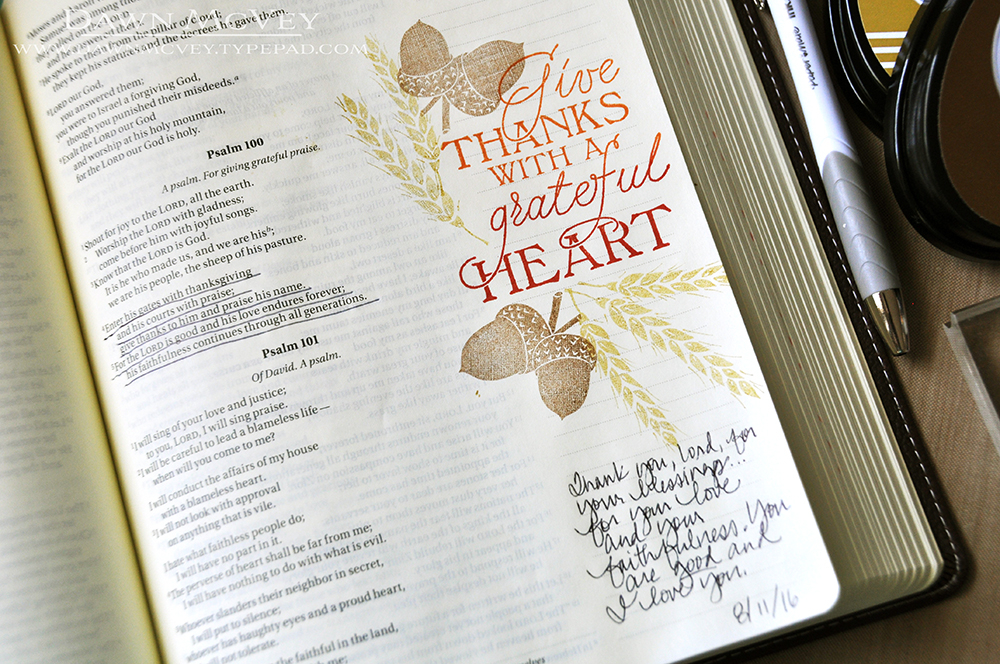 DAWN MCVEY
samuel was among tho
and he answered them.
He spoke to them from the pillar of cloud;
they kept his statutes and the decrees he gave them.
LORD our God,
you answered them;
you were to Israel a forgiving God,
though you punished their misdeeds.ᵃ
⁹Exalt the LORD our God
and worship at his holy mountain,
for the LORD our God is holy.
Psalm 100
A psalm. For giving grateful praise.
¹Shout for joy to the LORD, all the earth.
²Worship the LORD with gladness;
come before him with joyful songs.
³Know that the LORD is God.
It is he who made us, and we are hisᵇ;
we are his people, the sheep of his pasture.
⁴Enter his gates with thanksgiving
and his courts with praise;
give thanks to him and praise his name.
⁵For the LORD is good and his love endures forever;
his faithfulness continues through all generations.
Psalm 101
Of David. A psalm.
¹I will sing of your love and justice;
to you, LORD, I will sing praise.
²I will be careful to lead a blameless life—
when will you come to me?
I will conduct the affairs of my house
with a blameless heart.
³I will not look with approval
on anything that is vile.
I hate what faithless people do;
I will have no part in it.
⁴The perverse of heart shall be far from me;
I will have nothing to do with what is evil.
⁵Whoever slanders their neighbor in secret,
I will put to silence;
whoever has haughty eyes and a proud heart,
I will not tolerate.
the faithful in the land,
Give
THANKS
WITH A
grateful
HEART
Thank you, Lord, for
your blessings...
for your love
and your
faithfulness. You
are good and
I love you.
8/11/16